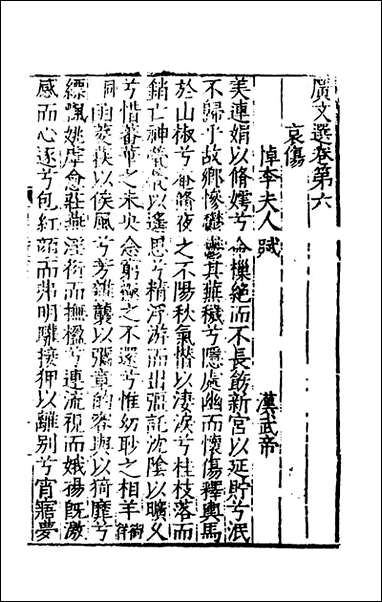 廣文選卷第六
哀傷
悼李夫人賦 漢武帝
美連娟以脩嫮兮命樔絕而不長飭新宮以延貯兮泯
不歸乎故鄉慘鬱鬱其蕪穢兮隱處幽而懷傷釋輿馬
於山椒兮奄脩夜之不陽秋氣憯以淒淚兮桂枝落而
銷亡神煢煢以遙思兮精浮游而出彊託沈陰以曠久
兮惜蕃華之未央念窮極之不還兮惟幼眇之相羊
函菱荴以俟風兮芳雜襲以彌章的容與以猗靡兮
縹飄姚虖愈莊燕淫衍而撫楹兮連流視而娥揚既激
感而心逐兮包紅顏而弗明驩接狎以離別兮宵寤夢